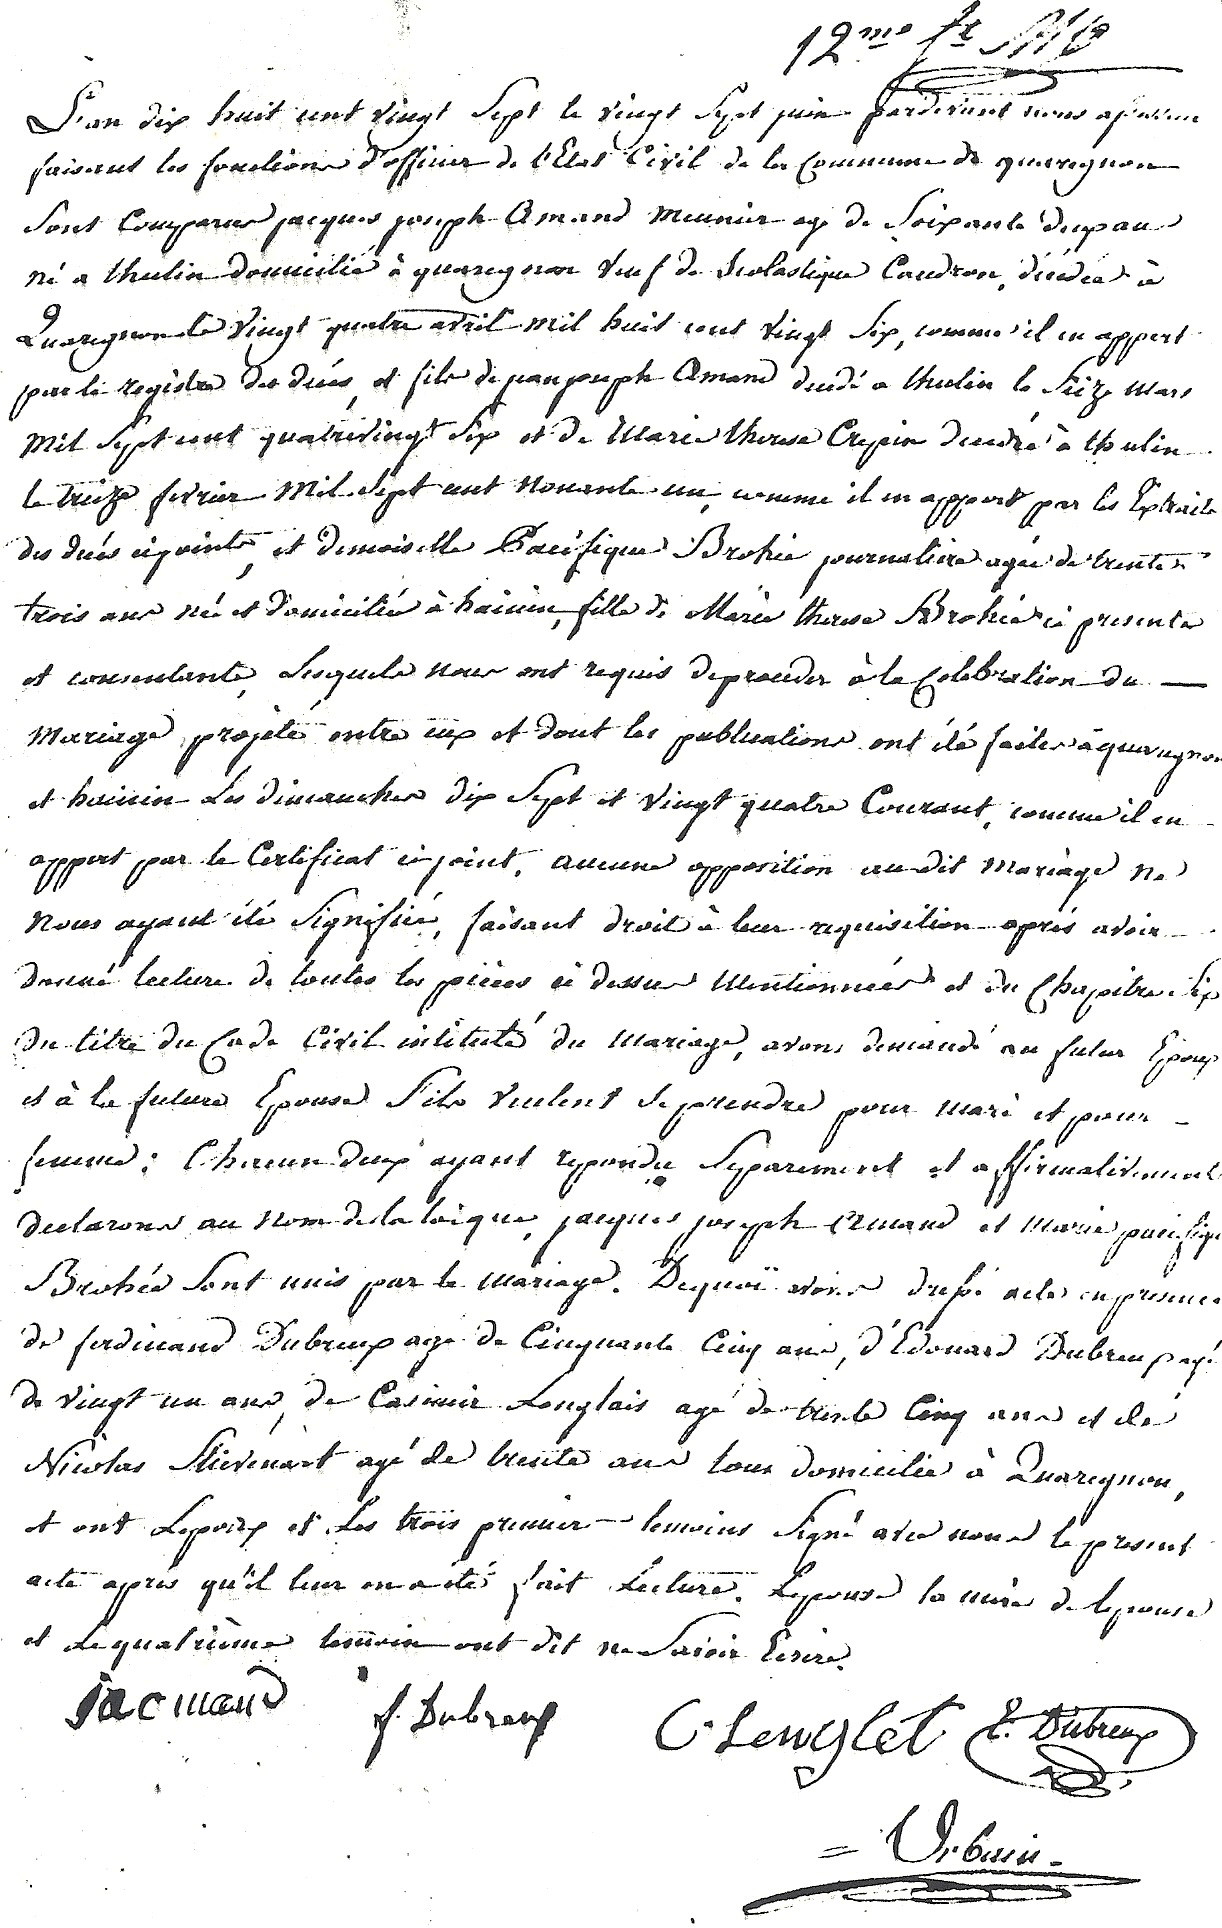 12me ft
L'an dix huit cent vingt Sept le vingt Sept juin pardevant nous
faisant les fonctions d'officier de l'Etat Civil de la Commune de quaregnon
Sont Comparus jacques joseph Amand Meunier agé de Soixante deux ans
né a thulin domicilié à quaregnon Veuf de Scolastique Caudron, décédée à
Quaregnon le Vingt quatre avril mil huit cent Vingt Six, comme il en appert
par le registre des décés, et fils de jean joseph Amand decédé a thulin le Seize Mars
Mil Sept cent quatrevingt Six et de Marie therese Crepin decedée à thulin
le treize fevrier Mil Sept cent Nonante un, comme il en appert par les Extraits
des décés cijoints, et demoiselle Pacifique Brohée journaliere agée de trente
trois ans né et domiciliée à hainin, fille de Marie therese Brohée ci presente
et consentante, Lesquels nous ont requis de proceder à la Celebration du
Mariage projeté entre eux et dont les publications ont été faites à quaregnon
et hainin Les dimanches dix Sept et Vingt quatre Courant, comme il en
appert par le Certificat ci joint, aucune opposition audit Mariage ne
Nous ayant été Signifiée, faisant droit à leur requisition aprés avoir
donné lecture de toutes les piéces ci dessus Mentionnées et du Chapitre Six
du titre du Code Civil intitulé du Mariage, avons demandé au futur Epoux
et à la future Epouse S'ils veulent se prendre pour mari et pour
femme: Chacun deux ayant repondu Separement et affirmativement
declarons au Nom de la loi que, jacques joseph Amand et Marie pacifique
Brohée Sont unis par le Mariage. De quoi avons dressé acte en presence
de ferdinand Dubreux agé de Cinquante Cinq ans, d'Edouard Dubreux agé
de Vingt un ans, de Casimir Lenglais agé de trente Cinq ans et de
Nicolas Stievenart agé de trente ans tous domicilié à Quaregnon,
et ont Lepoux et Les trois premier temoins Signé avec nous le present
acte aprés qu'il leur en a été fait Lecture. Lepouse la mére de lepouse
et Le quatriéme temoin ont dit ne Savoir Ecrire.
jacmand f. Dubreux C Lenglet E. Dubreux
= Urbain -